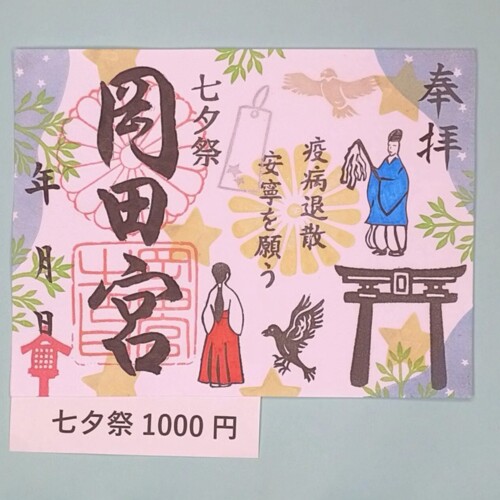 奉拝
疫病退散
安寧を願う
七夕祭
岡田宮
年月日
七夕祭 1000 円